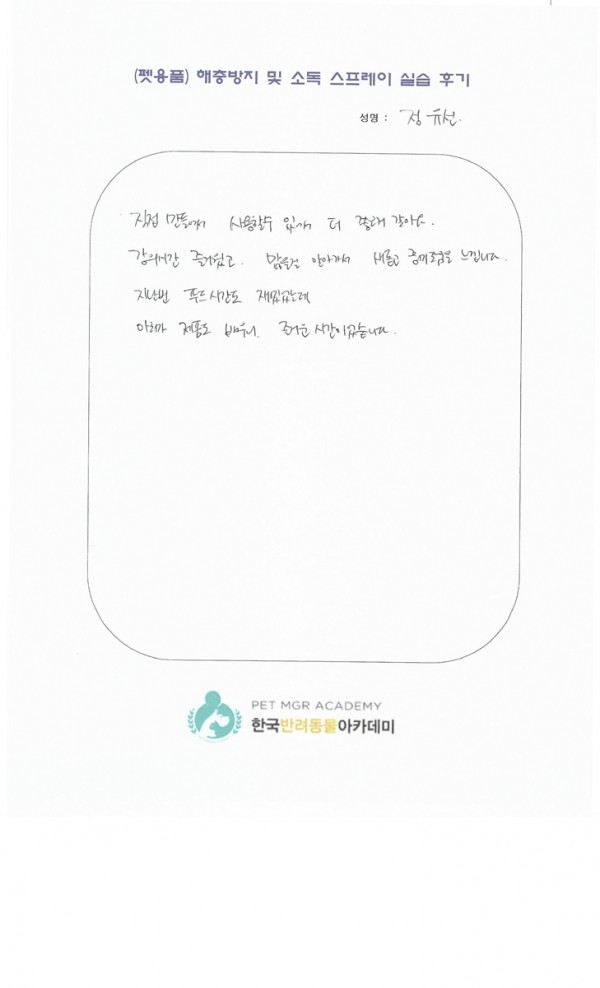 (펫용품) 해충방지 및 소독 스프레이 실습 후기
성명 : 정유선.
직접 만들어서 사용할수 있어서 더 좋은거 같아요.
강의시간 즐거웠고. 많은걸 알아가서 새롭고 흥미로움을 느낍니다.
지난번 푸드시간도 재밌었는데
제품도 배우니. 즐거운 시간이었습니다.
PET MGR ACADEMY
한국반려동물아카데미